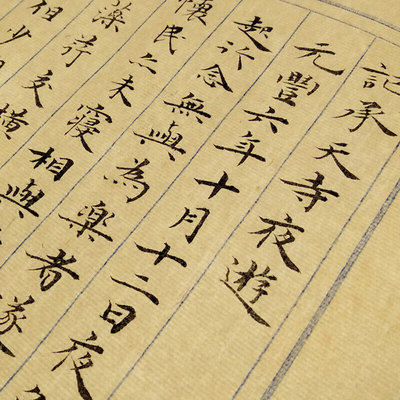 記承天寺夜遊
元豐六年十月十二日夜
起行念無與為樂者遂
懷民亦未寢相與
藻荇交橫
但少